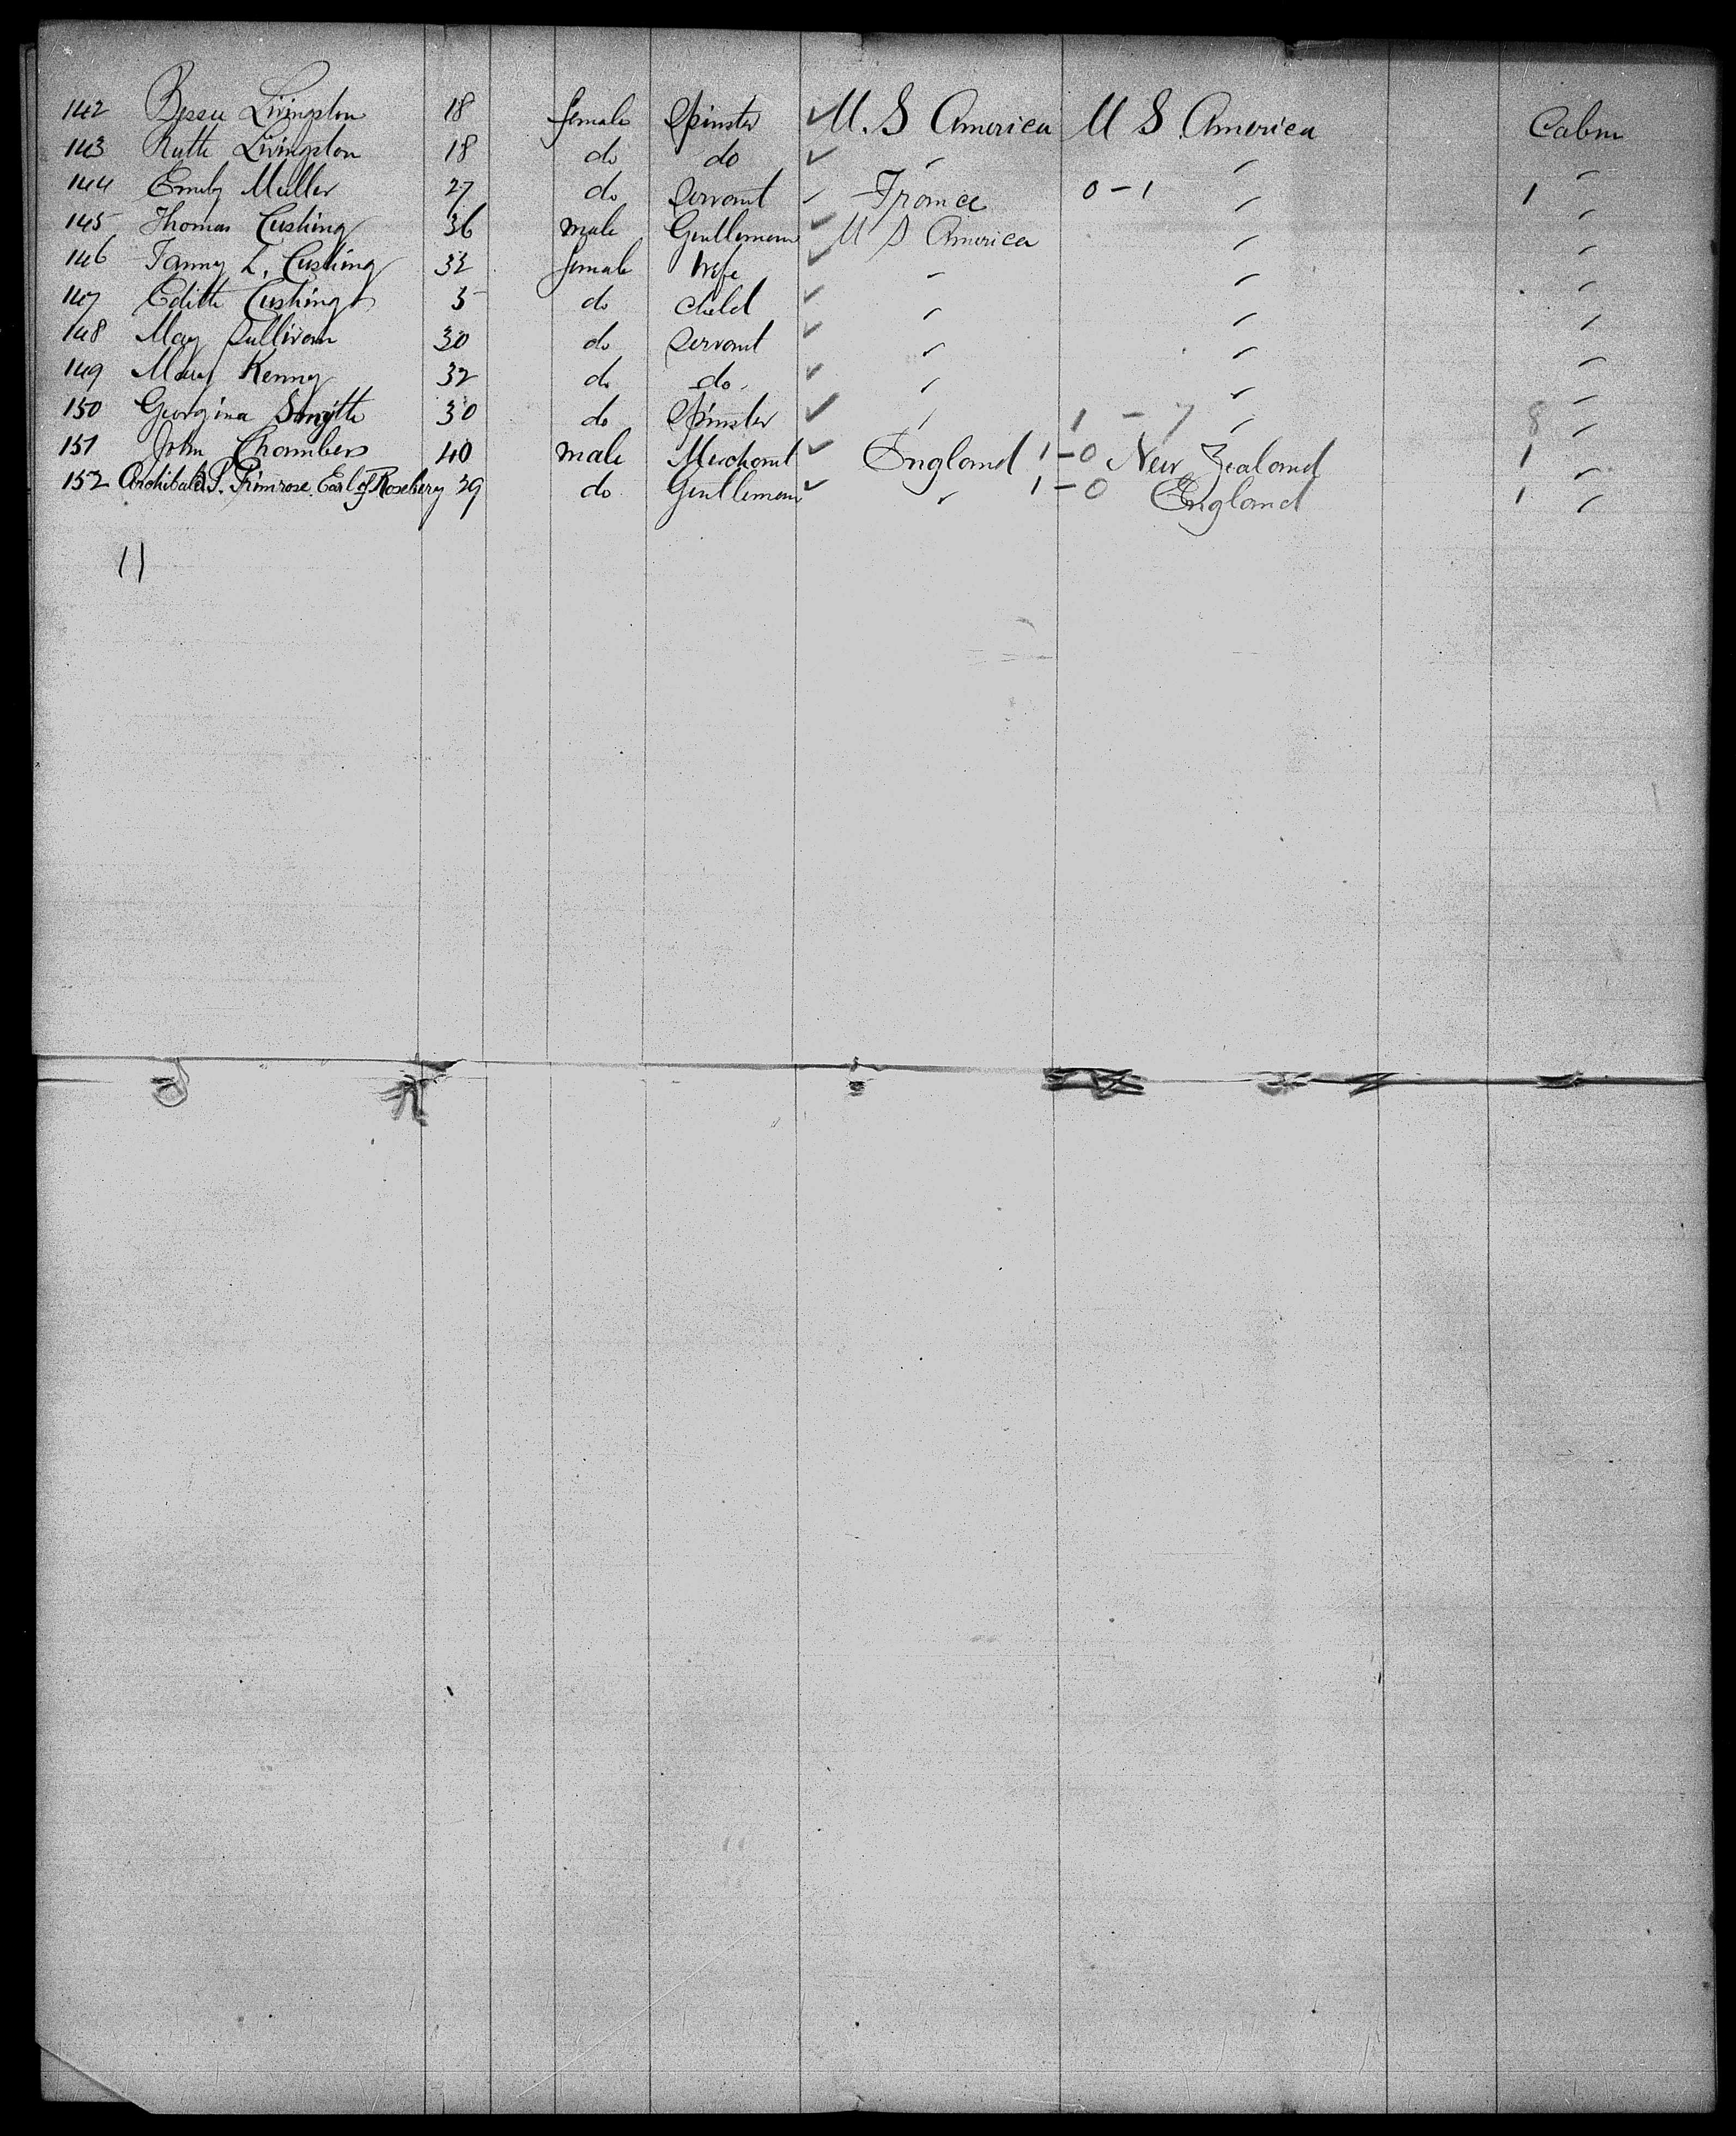 142 Bessie Livingston 18 female Spinster ✓ U. S America U S. America Cabin
143 Ruth Livingston 18 do do ✓ " " "
144 Emily Muller 27 do Servant ✓ France 0-1 " 1 "
145 Thomas Cushing 36 male Gentleman ✓ U S America " "
146 Fanny L. Cushing 32 female Wife ✓ " " "
147 Edith Cushing 5 do child ✓ " " "
148 May Sullivan 30 do Servant ✓ " " "
149 Mary Kenny 32 do do ✓ " " "
150 Georgina Smyth 30 do Spinster ✓ " 1-7 " 8 "
151 John Chambers 40 male Merchant ✓ England 1-0 New Zealand 1 "
152 Archibald P. Primrose, Earl of Rosebery 39 do Gentleman ✓ " 1-0 England 1 "
11